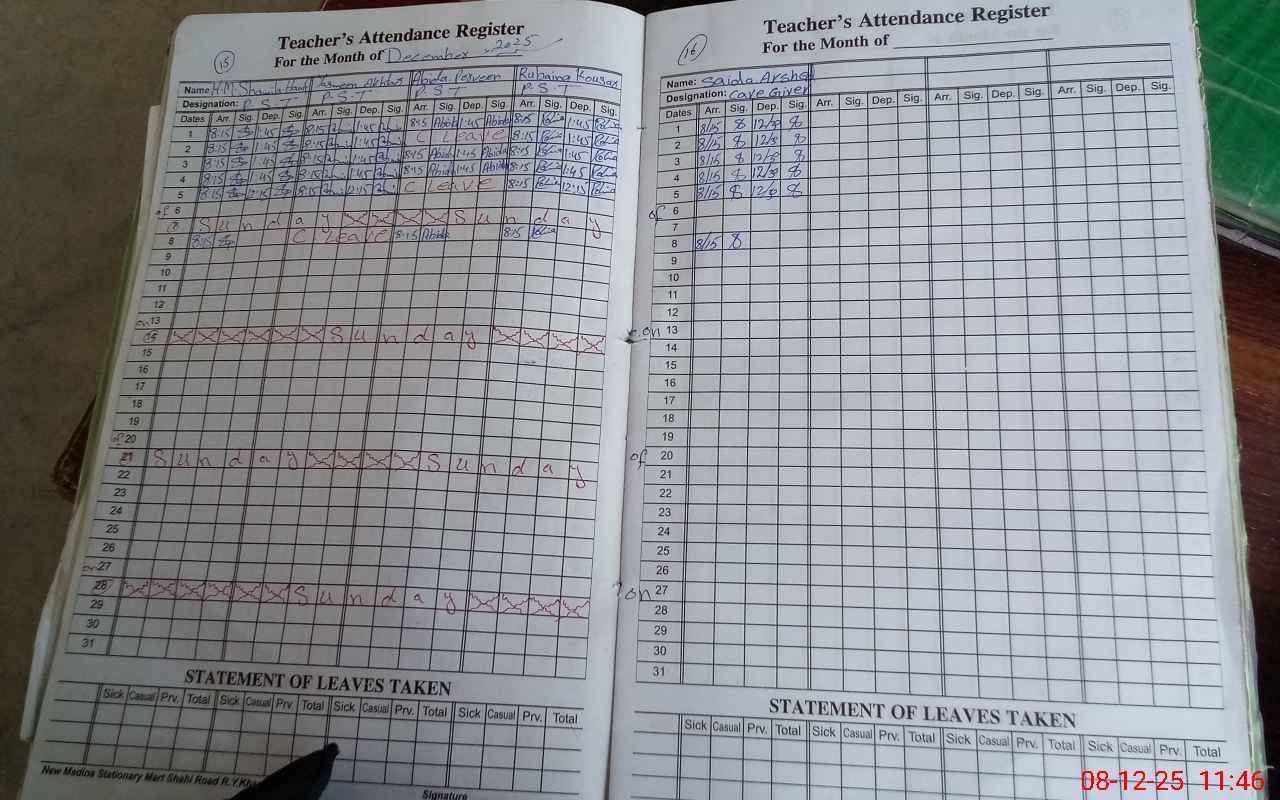 15
Teacher's Attendance Register
For the Month of December 2025
Name: H.M. Shamila Yasmeen Akhtar Abida Perveen Rubaina Kousar
Designation: P.S.T P.S.T P.S.T P.S.T
Dates Arr. Sig. Dep. Sig. Arr. Sig. Dep. Sig. Arr. Sig. Dep. Sig. Arr. Sig. Dep. Sig.
1 8:15 1:45 8:15 1:45 8:15 Abida 1:45 Abida 8:15 1:45
2 8:15 1:45 8:15 1:45 C Leave 8:15 1:45
3 8:15 1:45 8:15 1:45 8:15 Abida 1:45 Abida 8:15 1:45
4 8:15 1:45 8:15 1:45 8:15 Abida 1:45 Abida 8:15 1:45
5 8:15 12:15 8:15 12:15 C Leave 8:15 12:15
of 6
7 Sunday Sunday
8 8:15 C. Leave 8:15 Abida 8:15
9
10
11
12
on 13
14 Sunday
15
16
17
18
19
of 20
21 Sunday Sunday
22
23
24
25
26
on 27
28 Sunday
29
30
31
STATEMENT OF LEAVES TAKEN
Sick Casual Prv. Total Sick Casual Prv. Total Sick Casual Prv. Total Sick Casual Prv. Total
New Madina Stationary Mart Shahi Road R.Y.Kha
Signature
16
Teacher's Attendance Register
For the Month of
Name: Saida Arshad
Designation: Cave Giver
Dates Arr. Sig. Dep. Sig. Arr. Sig. Dep. Sig. Arr. Sig. Dep. Sig. Arr. Sig. Dep. Sig.
1 8/15 12/30
2 8/15 12/30
3 8/15 12/30
4 8/15 12/30
5 8/15 12/30
of 6
7
8 8/15
9
10
11
12
on 13
14
15
16
17
18
19
of 20
21
22
23
24
25
26
on 27
28
29
30
31
STATEMENT OF LEAVES TAKEN
Sick Casual Prv. Total Sick Casual Prv. Total Sick Casual Prv. Total Sick Casual Prv. Total
08-12-25 11:46